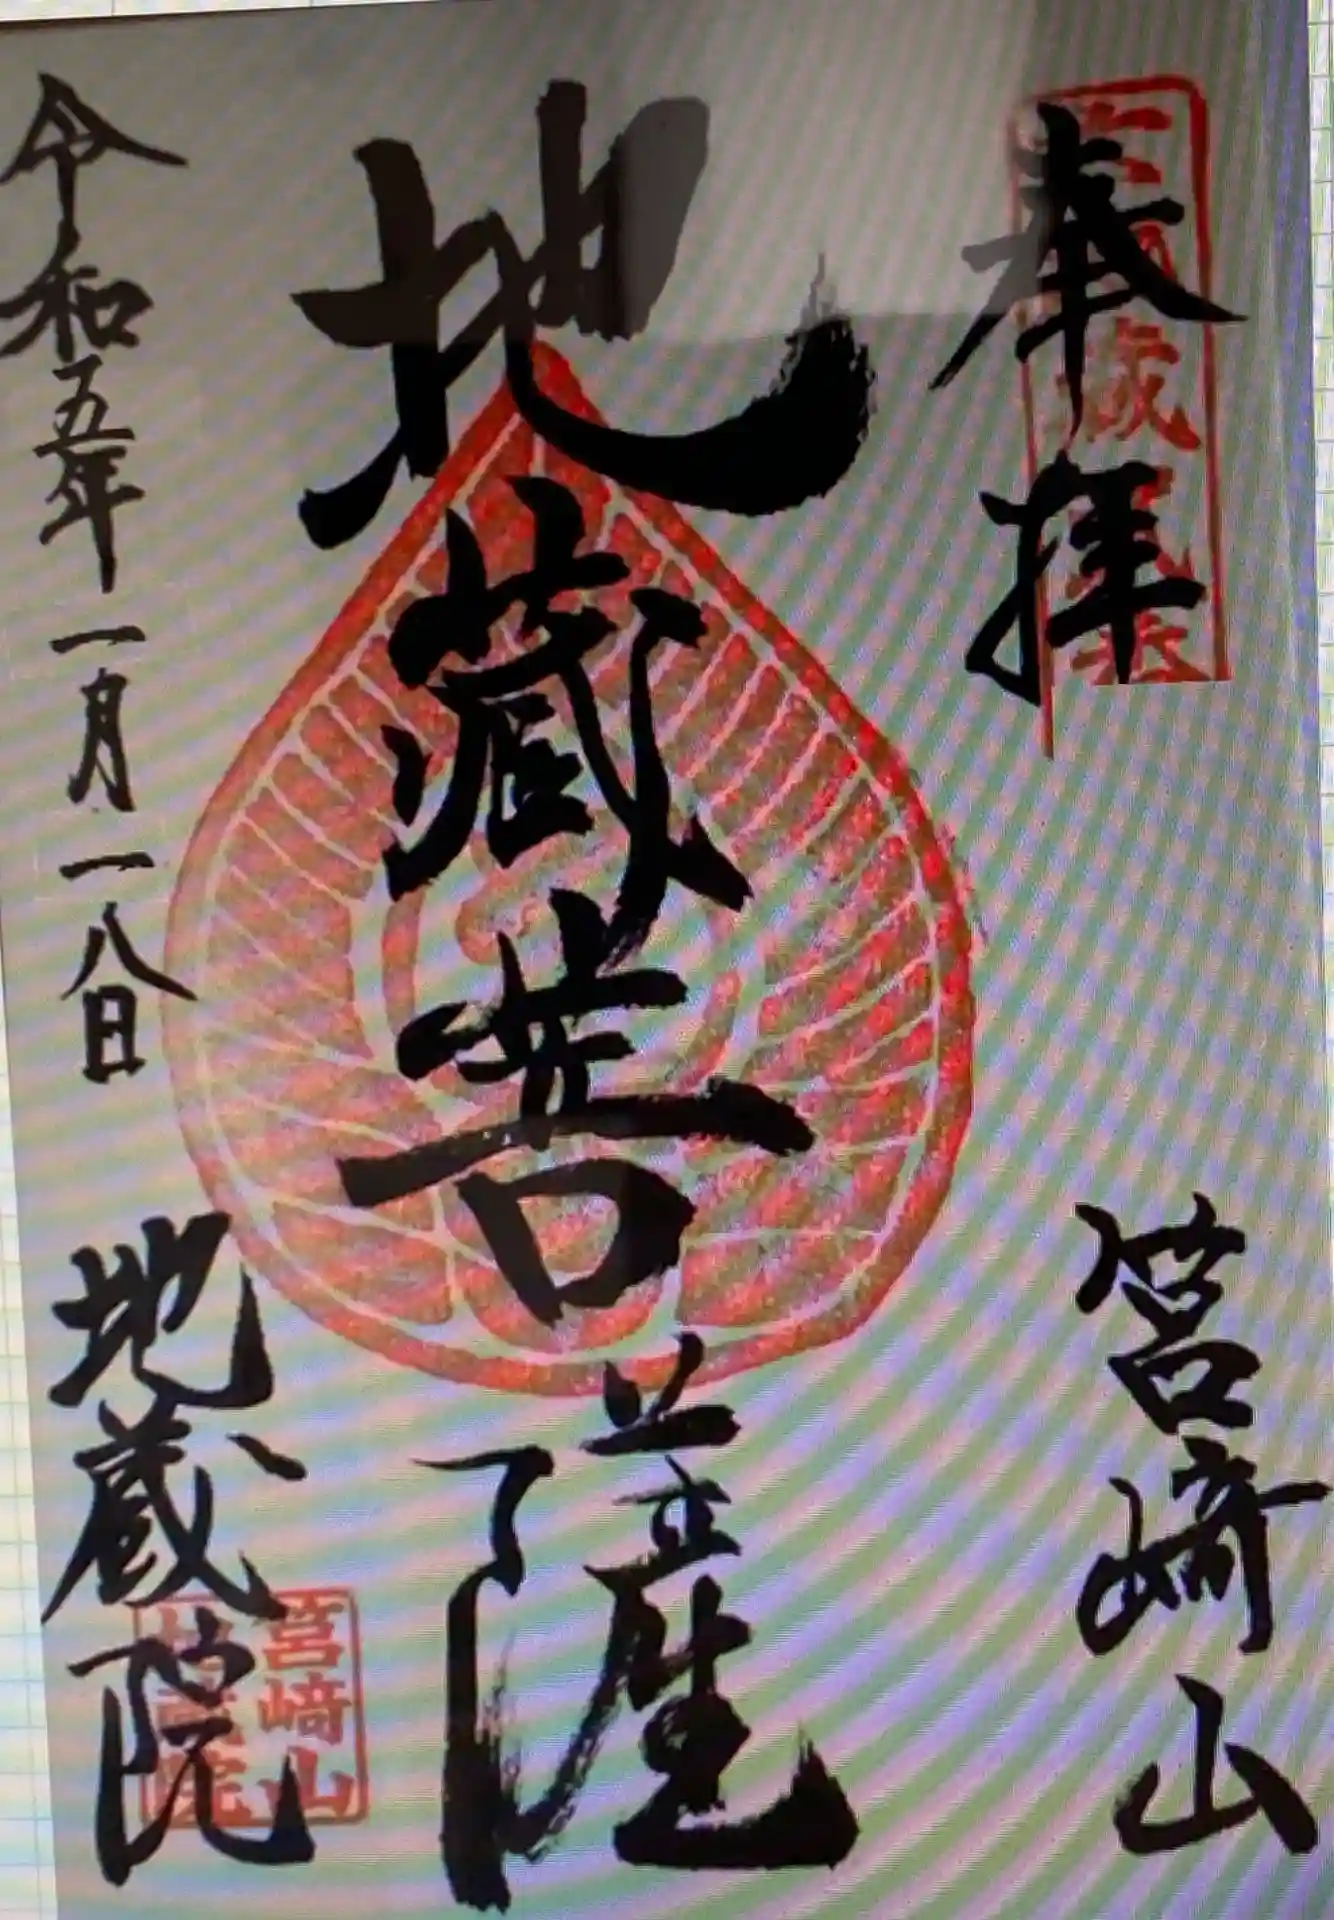 奉拝
筥崎山
地蔵菩薩
令和五年一月一八日
地蔵院
筥崎山
地蔵院